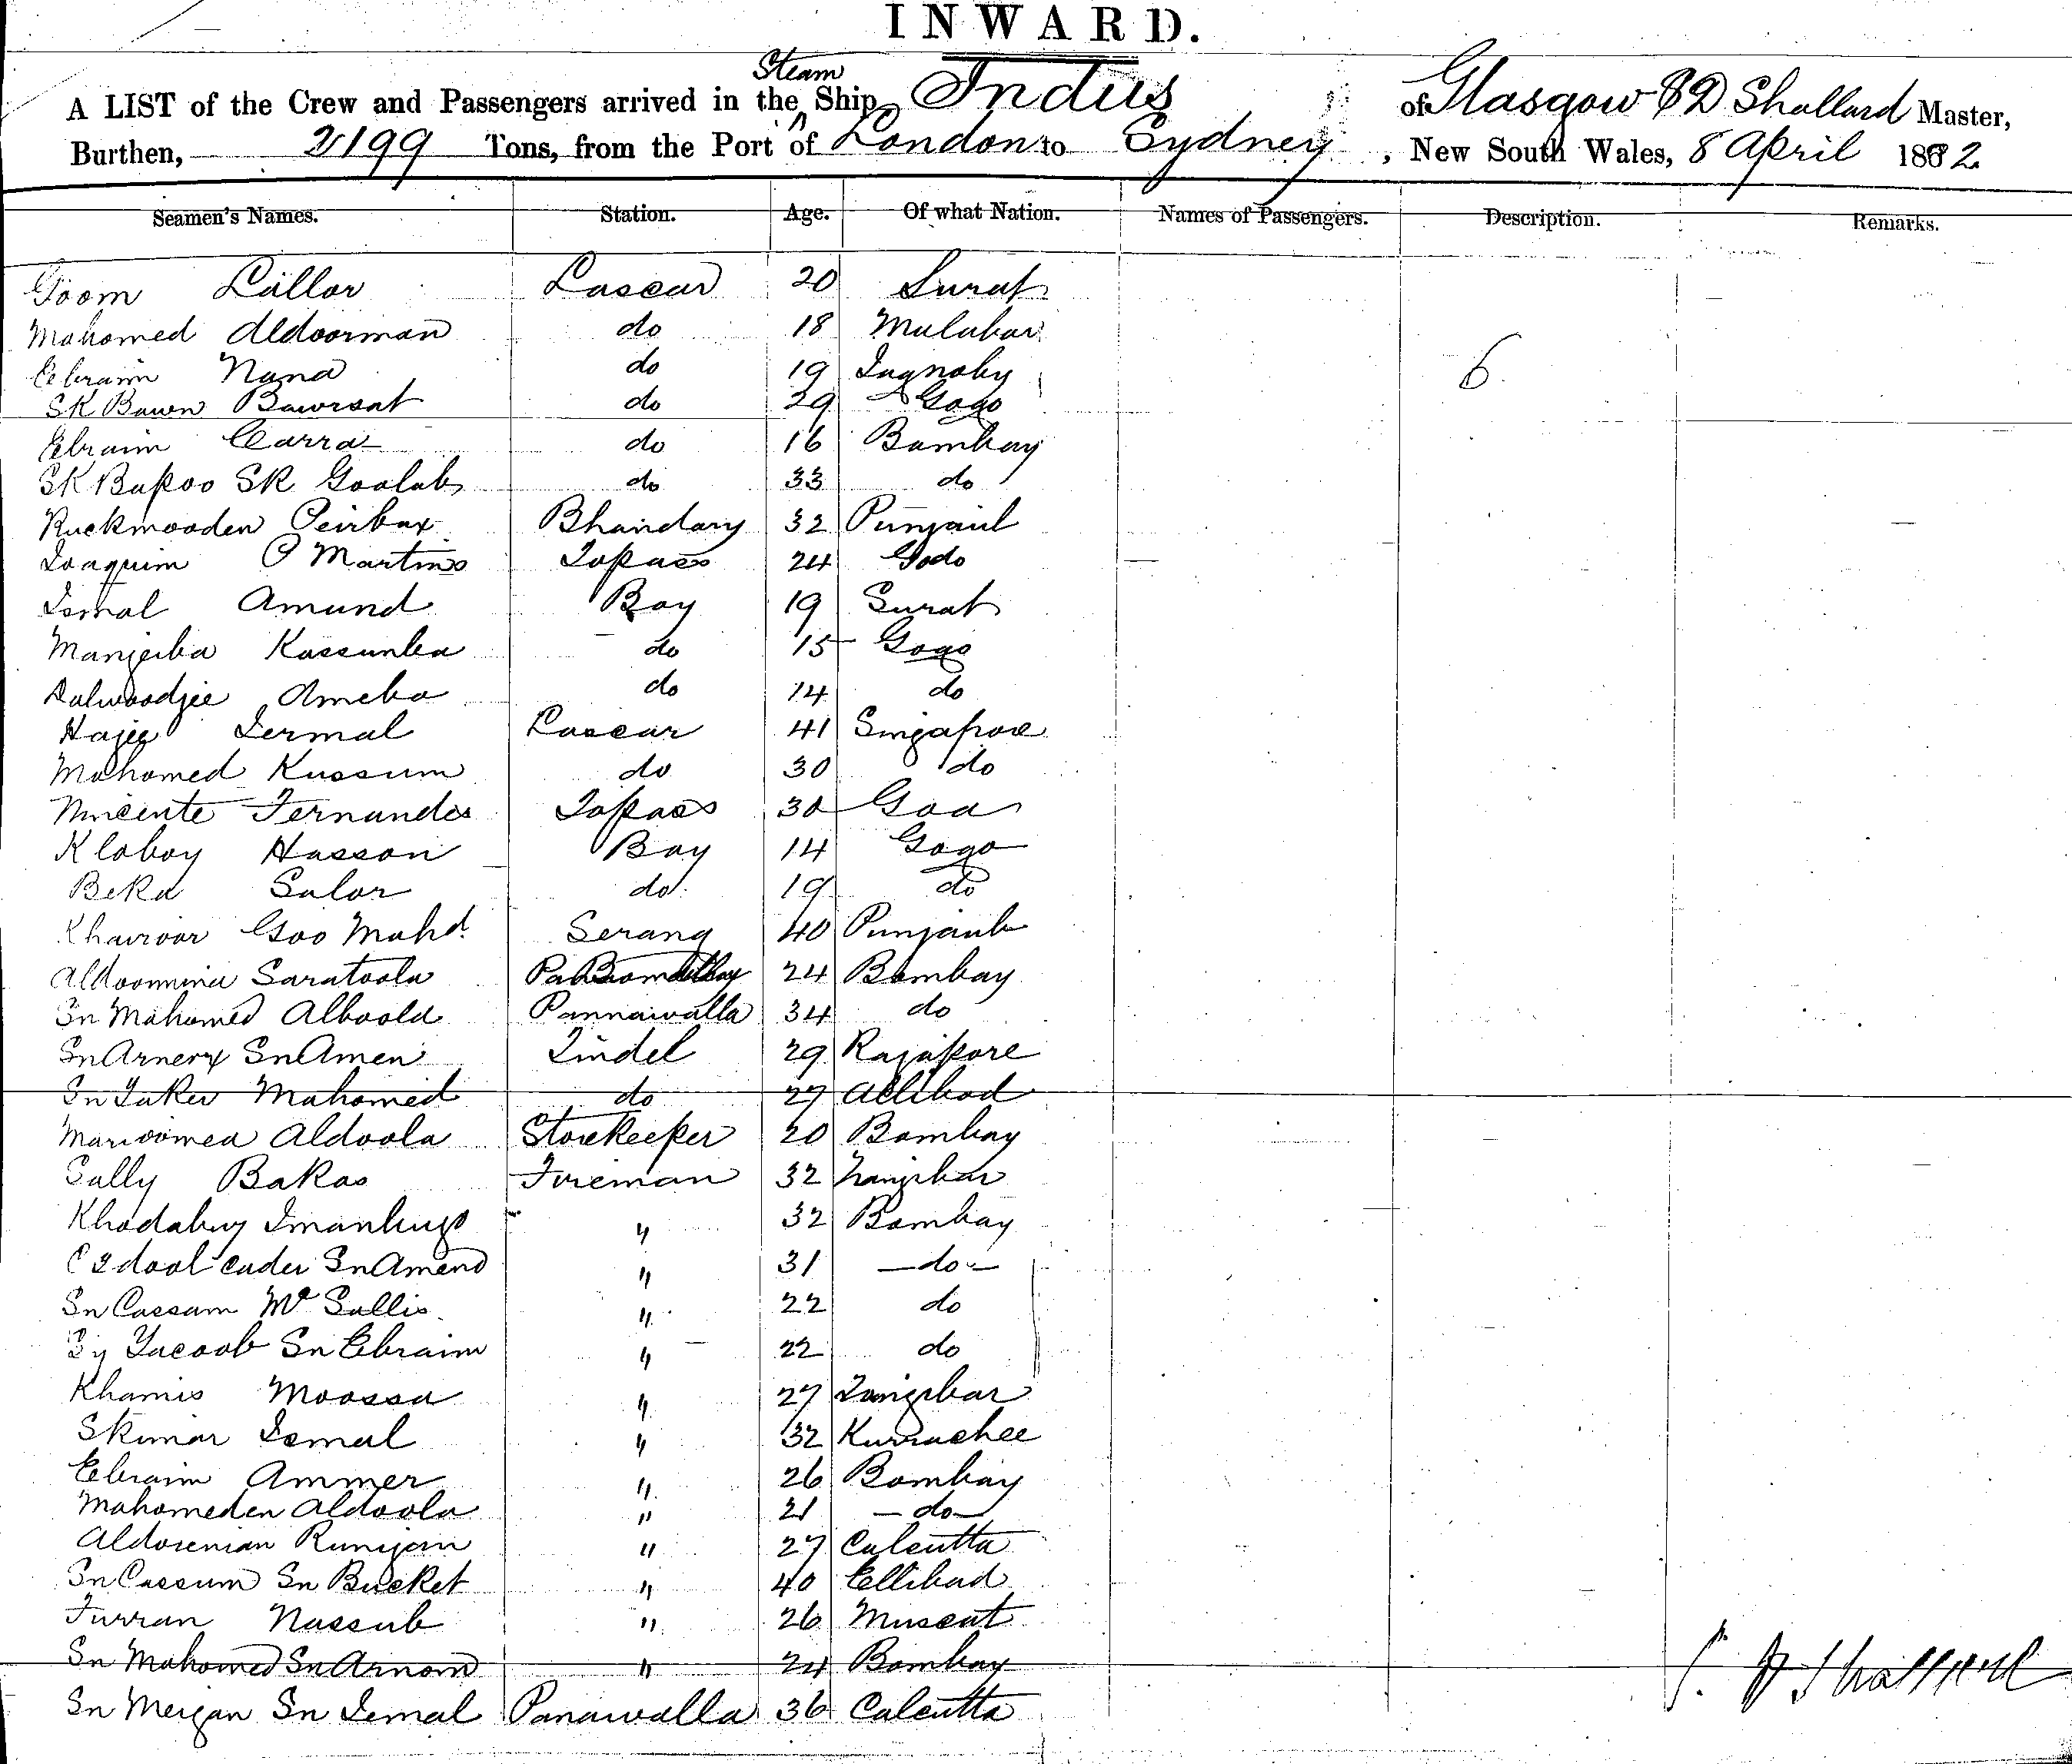 INWARD.
A LIST of the Crew and Passengers arrived in the Steam Ship Indus of Glasgow P D Shallard Master,
Burthen, 2199 Tons, from the Port of London to Sydney, New South Wales, 8 April 1882
Seamen's Names. Station. Age. Of what Nation. Names of Passengers. Description. Remarks.
Goom Lallor Lascar 20 Surat
Mahomed Aldoorman do 18 Malabar
Ebraim Nana do 19
SK Bawn Bawrsat do 29 Gogo
Ebraim Carra do 16 Bombay
SK Bapoo SK Goolab do 33 do
Ruckmooden Peirbux Bhandary 32 Punjaub
Joaquim P Martins Topass 24 Godo
Ismal Amund Boy 19 Surat
Manjeiba Kassumba do 15 Gogo
Dalwoodjee Ameba do 14 do
Hajee Jermal Lascar 41 Singapore
Mahomed Kussum do 30 do
Vincente Fernandes Topass 30 Goa
Kloboy Hasson Boy 14 Gogo
Beka Salor do 19 do
Khairoor Goo Mahd. Serang 40 Punjaub
Aldoomina Saratoola 24 Bombay
Sn Mahomed Alboola Pannawalla 34 do
Sn Arnery Sn Amen Tindel 29 Rajapore
Sn Jaker Mahomed do 27 Allibad
Marioomea Aldoola Storekeeper 20 Bombay
Sally Bakas Fireman 32 Zanzibar
Khodabux Imanbux " 32 Bombay
Cader Sn Amend " 31 - do -
Sn Cassam Md Sallis " 22 do
Sy Yacoob Sn Ebraim " 22 do
Khamis Moossa " 27 Zanzibar
Skimar Ismal " 32 Kurrachee
Ebraim Ammer " 26 Bombay
Mahomeden Aldoola " 21 - do -
Aldorenian Rumjan " 27 Calcutta
Sn Cassum Sn Bucket " 40 Ellibad
Furran Nassub " 26 Muscat
Sn Mahomed Sn Arnom " 24 Bombay
Sn Meijan Sn Jemal Panawalla 36 Calcutta
P. D Shallard